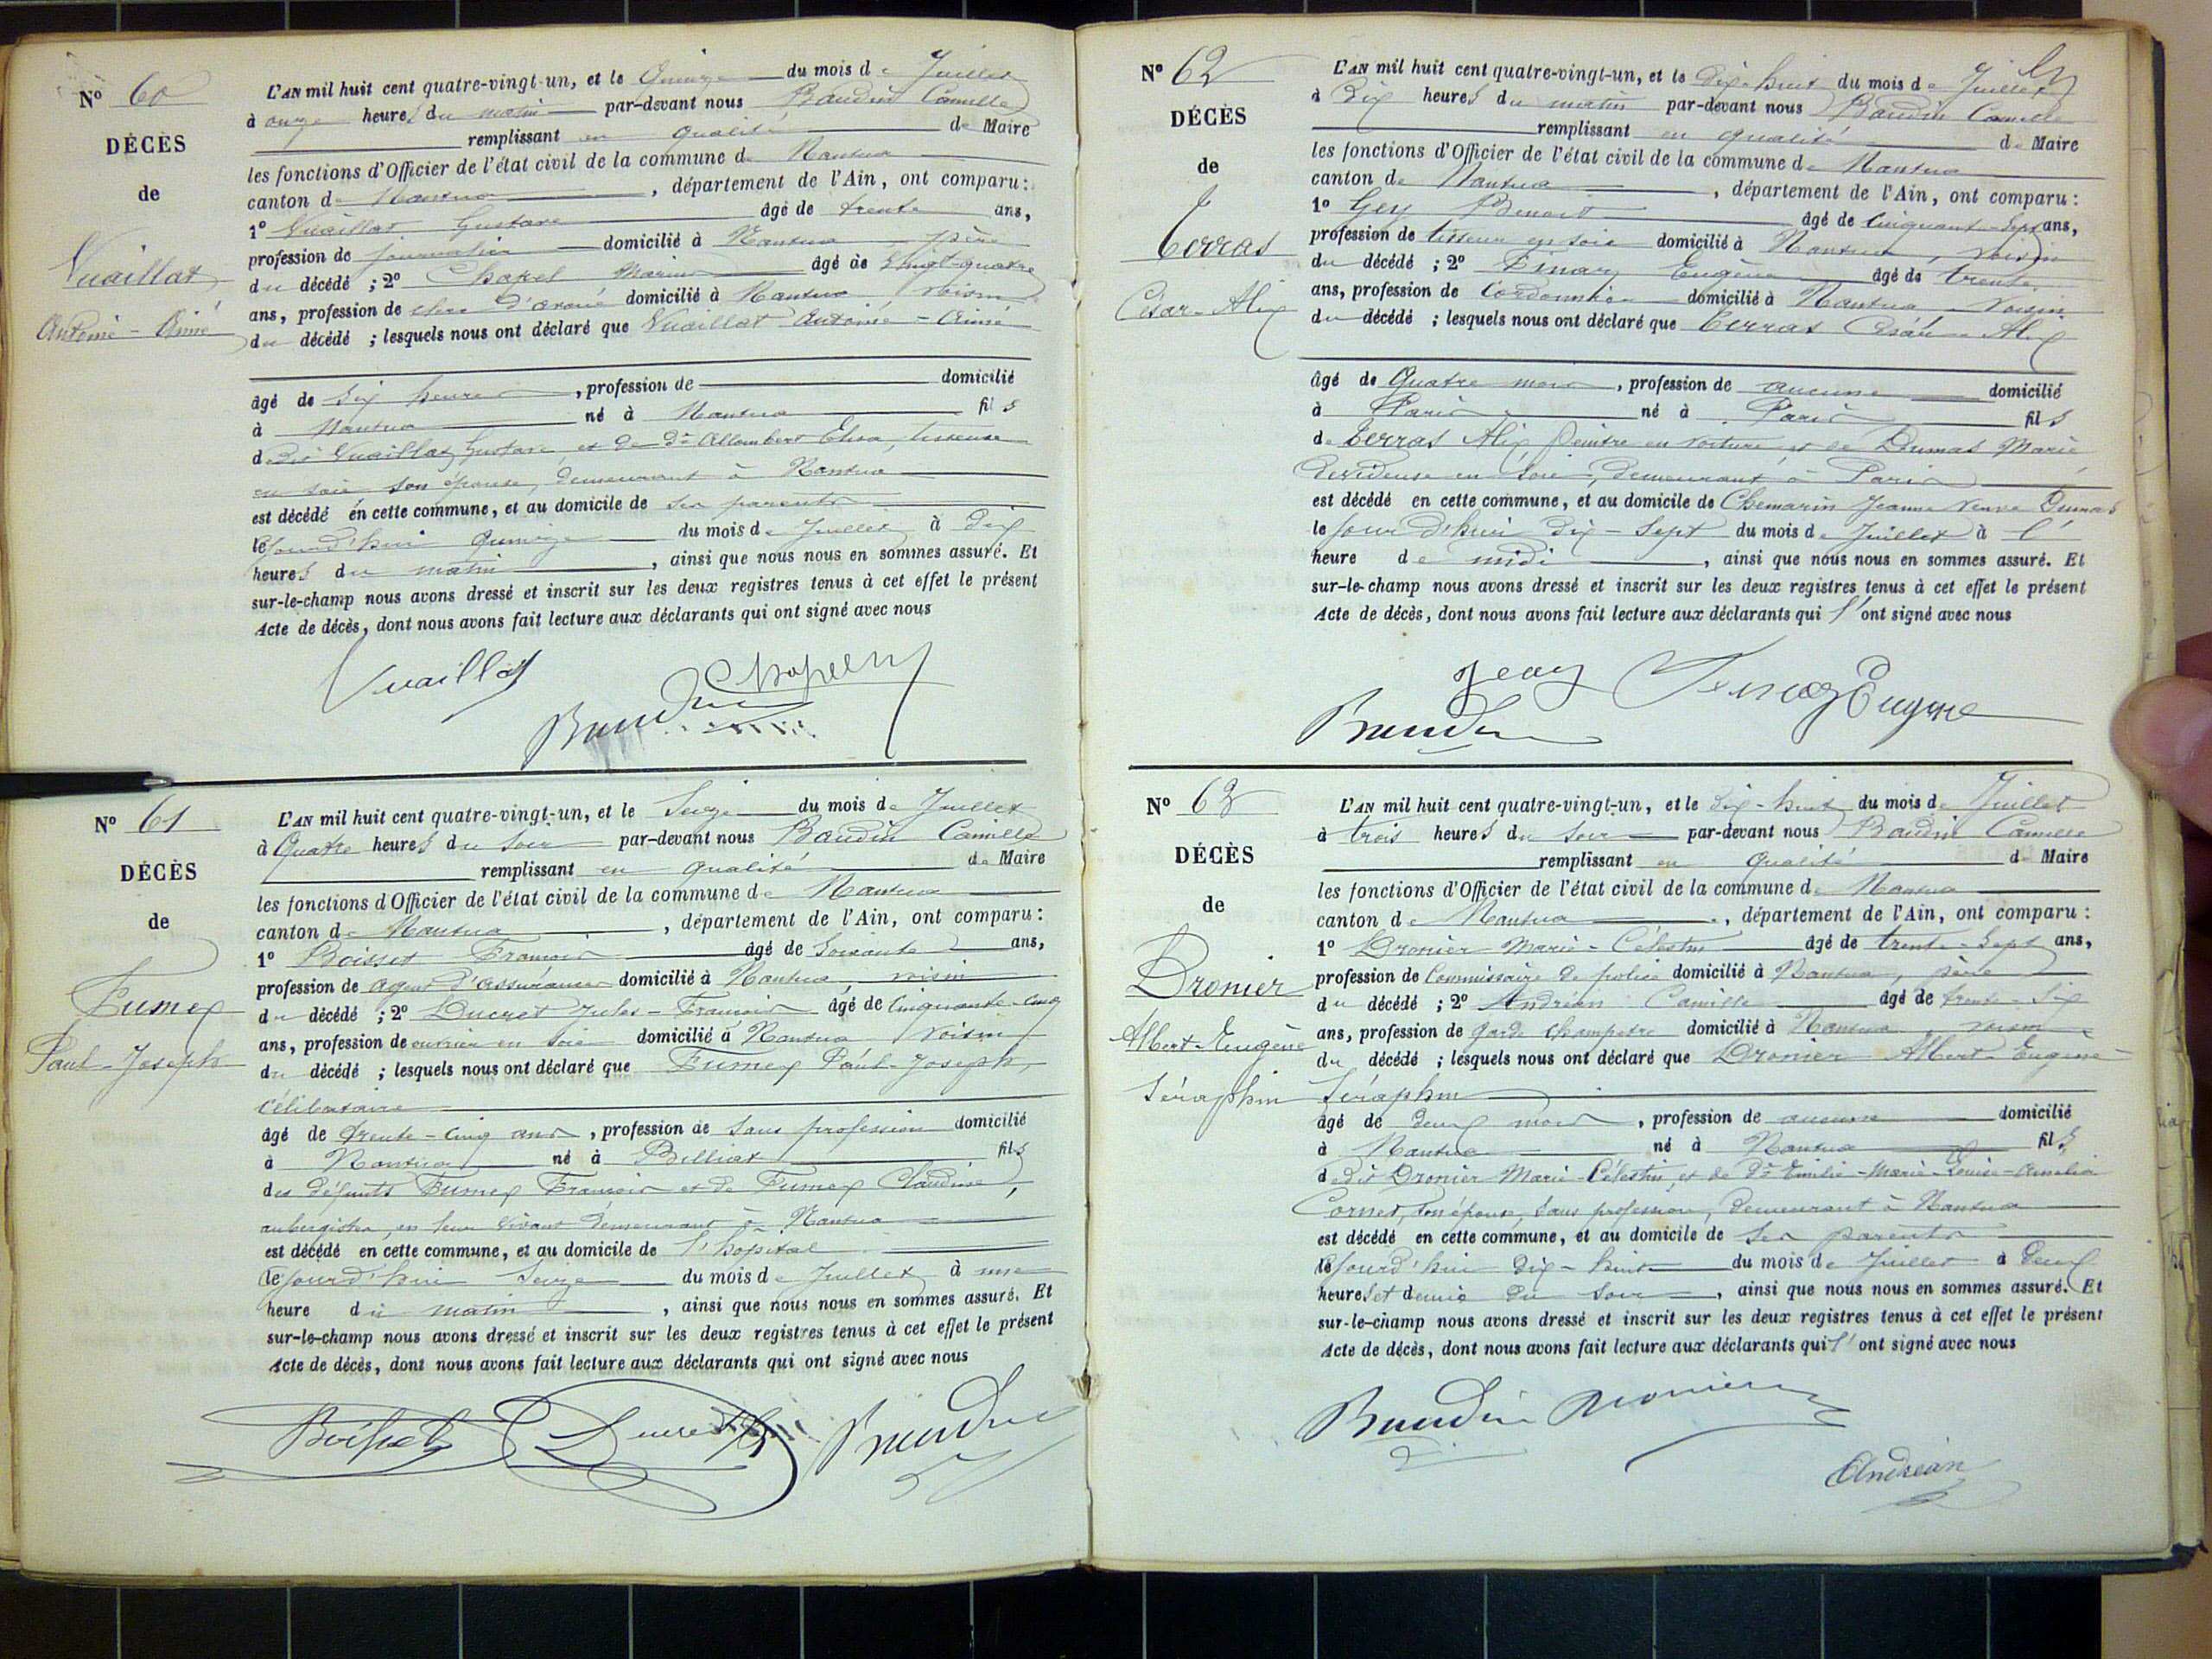 Nº 60
DÉCÈS
de
Vuaillat
Antoine-Aimé
L'AN mil huit cent quatre-vingt-un, et le Quinze du mois de Juillet
à onze heures du matin par-devant nous Baudin Camille
remplissant en qualité de Maire
les fonctions d'Officier de l'état civil de la commune de Nantua
canton de Nantua, département de l'Ain, ont comparu:
1º Vuaillat Gustave âgé de trente ans,
profession de journalier domicilié à Nantua père
du décédé ; 2º Chapel Marius âgé de vingt-quatre
ans, profession de clerc d'avoué domicilié à Nantua voisin
du décédé ; lesquels nous ont déclaré que Vuaillat Antoine-Aimé
âgé de six heures, profession de domicilié
à Nantua né à Nantua fils
de dit Vuaillat Gustave, et de De Allombert Elisa, tisseuse
en soie son épouse, demeurant à Nantua
est décédé en cette commune, et au domicile de ses parents
le jourd'hui Quinze du mois de Juillet à dix
heures du matin, ainsi que nous nous en sommes assuré. Et
sur-le-champ nous avons dressé et inscrit sur les deux registres tenus à cet effet le présent
Acte de décès, dont nous avons fait lecture aux déclarants qui ont signé avec nous
Vuaillat
Baudin
Nº 61
DÉCÈS
de
Fumex
Paul-Joseph
L'AN mil huit cent quatre-vingt-un, et le Seize du mois de Juillet
à Quatre heures du soir par-devant nous Baudin Camille
remplissant en qualité de Maire
les fonctions d'Officier de l'état civil de la commune de Nantua
canton de Nantua, département de l'Ain, ont comparu:
1º Boisset François âgé de soixante ans,
profession de agent d'assurances domicilié à Nantua, voisin
du décédé ; 2º Ducret Jules-François âgé de Cinquante-cinq
ans, profession de ouvrier en soie domicilié à Nantua voisin
du décédé ; lesquels nous ont déclaré que Fumex Paul-Joseph,
célibataire
âgé de trente-cinq ans, profession de sans profession domicilié
à Nantua né à Belliat fils
des défunts Fumex François et de Fumex Claudine,
aubergistes, en leur vivant demeurant à Nantua
est décédé en cette commune, et au domicile de l'hôpital
le jourd'hui Seize du mois de Juillet à une
heure du matin, ainsi que nous nous en sommes assuré. Et
sur-le-champ nous avons dressé et inscrit sur les deux registres tenus à cet effet le présent
Acte de décès, dont nous avons fait lecture aux déclarants qui ont signé avec nous
Boisset Ducret Baudin
Nº 62
DÉCÈS
de
Terras
César-Alix
L'AN mil huit cent quatre-vingt-un, et le Dix-huit du mois de Juillet
à Dix heures du matin par-devant nous Baudin Camille
remplissant en qualité de Maire
les fonctions d'Officier de l'état civil de la commune de Nantua
canton de Nantua, département de l'Ain, ont comparu:
1º Gey Benoit âgé de Cinquante-sept ans,
profession de tisseur en soie domicilié à Nantua, voisin
du décédé ; 2º Finaz Eugène âgé de trente
ans, profession de Cordonnier domicilié à Nantua, voisin
du décédé ; lesquels nous ont déclaré que Terras César-Alix
âgé de Quatre mois, profession de aucune domicilié
à Paris né à Paris fils
de Terras Alix peintre en voiture et de Dumas Marie
dévideuse en soie, demeurant à Paris
est décédé en cette commune, et au domicile de Chemarin Jeanne veuve Dumas
le jour d'hui Dix-sept du mois de Juillet à l'
heure de midi, ainsi que nous nous en sommes assuré. Et
sur-le-champ nous avons dressé et inscrit sur les deux registres tenus à cet effet le présent
Acte de décès, dont nous avons fait lecture aux déclarants qui l'ont signé avec nous
Eugene
Baudin
Nº 63
DÉCÈS
de
Dronier
Albert-Eugène
Séraphin
L'AN mil huit cent quatre-vingt-un, et le Dix-huit du mois de Juillet
à trois heures du soir par-devant nous Baudin Camille
remplissant en qualité de Maire
les fonctions d'Officier de l'état civil de la commune de Nantua
canton de Nantua, département de l'Ain, ont comparu:
1º Dronier Marie-Célestin âgé de trente-sept ans,
profession de Commissaire de police domicilié à Nantua, père
du décédé ; 2º Andréan Camille âgé de trente-six
ans, profession de garde champetre domicilié à Nantua voisin
du décédé ; lesquels nous ont déclaré que Dronier Albert-Eugène-
Séraphin
âgé de deux mois, profession de aucune domicilié
à Nantua né à Nantua fils
de dit Dronier Marie-Célestin, et de De Emilie-Marie-Louise-Amelia
Cornet, son épouse, sans profession, demeurant à Nantua
est décédé en cette commune, et au domicile de ses parents
le jourd'hui Dix-huit du mois de Juillet à deux
heures et demie du soir, ainsi que nous nous en sommes assuré. Et
sur-le-champ nous avons dressé et inscrit sur les deux registres tenus à cet effet le présent
Acte de décès, dont nous avons fait lecture aux déclarants qui l'ont signé avec nous
Baudin Dronier
Andréan